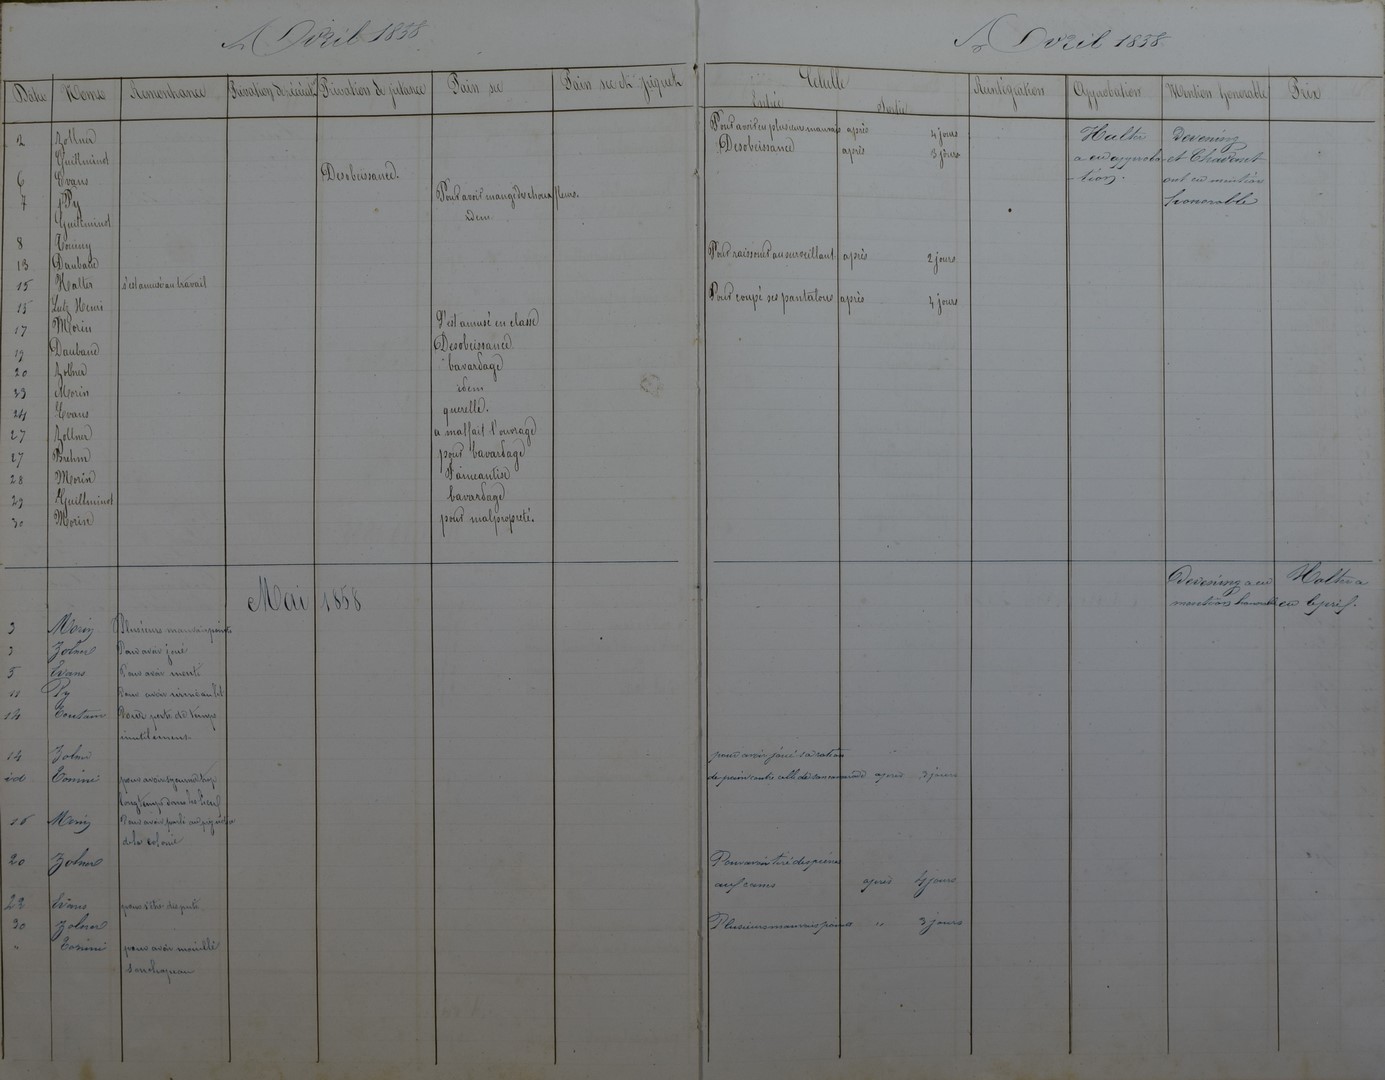 Avril 1858
Avril 1858
Dates Noms Remontrance Privation de récréat. Privation de pitance Pain sec Pain sec et piquet
Echelle Réintégration Approbation Mention honorable Prix
Entrée Sortie
2 Zollner Pour avoir eu plusieurs mauvais après 4 jours Halter Devening
Guilminot Desobeissance après 3 jours a eu approba- et Chavenet
6 Evans Desobeissance. -tion. ont eu mention
7 Py Pour avoir mangé des choux fleurs. honorable
Guilminot idem
8
13 Daubard Pour raisonner au surveillant après 2 jours
15 Halter s'est amusé au travail
15 Lutz Henri Pour coupé ses pantalons après 4 jours
17 Morin S'est amusé en classe
19 Daubard Desobeissance
20 Zolner bavardage
23 Morin idem
24 Evans querelle.
27 Zollner a mal fait l'ouvrage
27 Brehm pour bavardage
28 Morin Faineantise
29 Guillminot bavardage
30 Morin pour malpropreté.
Mai 1858
Devening a eu Halter a
mention honorable eu le prix.
3 Morin Plusieurs mauvais points
3 Zolner Pour avoir joué
5 Evans Pour avoir menti
11 Py Pour avoir
14 Pour perte de temps
inutilement.
14 Zolner pour avoir joué sa ration
id Tonini pour avoir de pain contre celle de son camarade après 3 jours
longtemps dans
15 Morin Pour avoir parlé
de la colonie
20 Zolner Pour avoir tiré des pierres
aux après 4 jours
22 Evans pour s'être disputé
30 Zolner Plusieurs mauvais points " 3 jours
" Tonini pour avoir mouillé
son chapeau